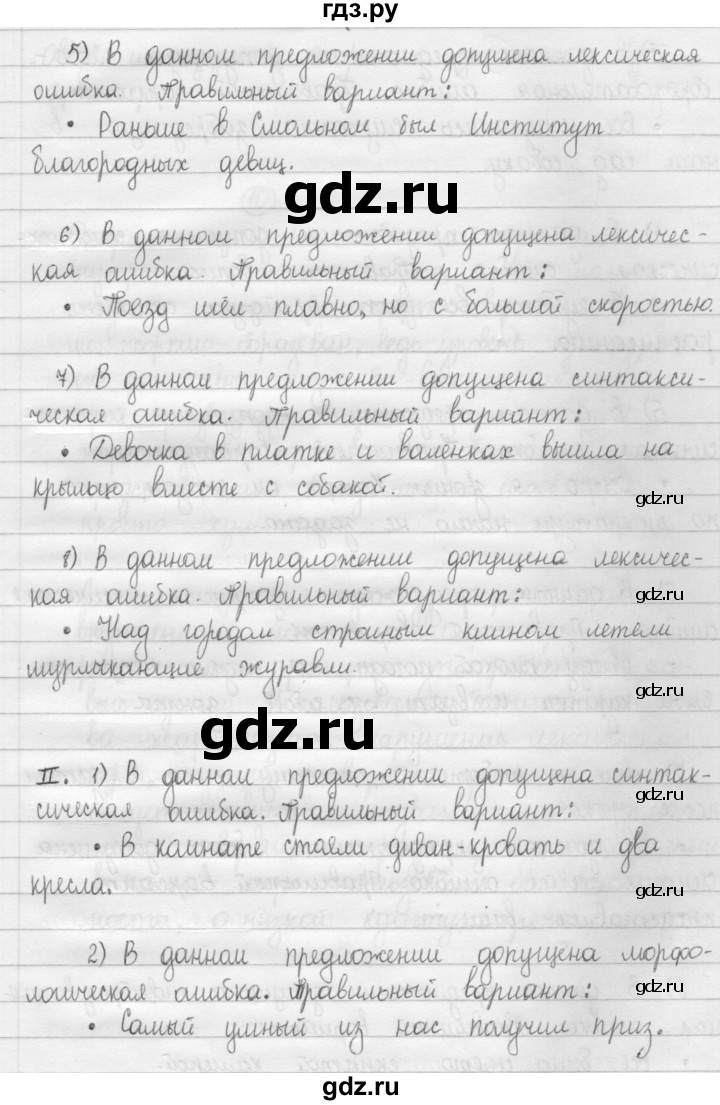 гдз.ру
5) В данном предложении допущена лексическая
ошибка. Правильный вариант:
• Раньше в Смольном был Институт
благородных девиц.
gdz.ru
6) В данном предложении допущена лексичес-
кая ошибка. Правильный вариант:
• Поезд шёл плавно, но с большой скоростью.
7) В данном предложении допущена синтакси-
ческая ошибка. Правильный вариант:
• Девочка в платке и валенках вышла на
крыльцо вместе с собакой.
gdz.ru
8) В данном предложении допущена лексичес-
кая ошибка. Правильный вариант:
gdz.ru
• Над городом стройным клином летели
мурлыкающие журавли.
gdz.ru
gdz.ru
II. 1) В данном предложении допущена синтак-
сическая ошибка. Правильный вариант:
gdz.ru
• В комнате стояли диван-кровать и два
кресла.
gdz.ru
2) В данном предложении допущена морфо-
логическая ошибка. Правильный вариант:
gdz.ru
• Самый умный из нас получил приз.
gdz.ru
gdz.ru